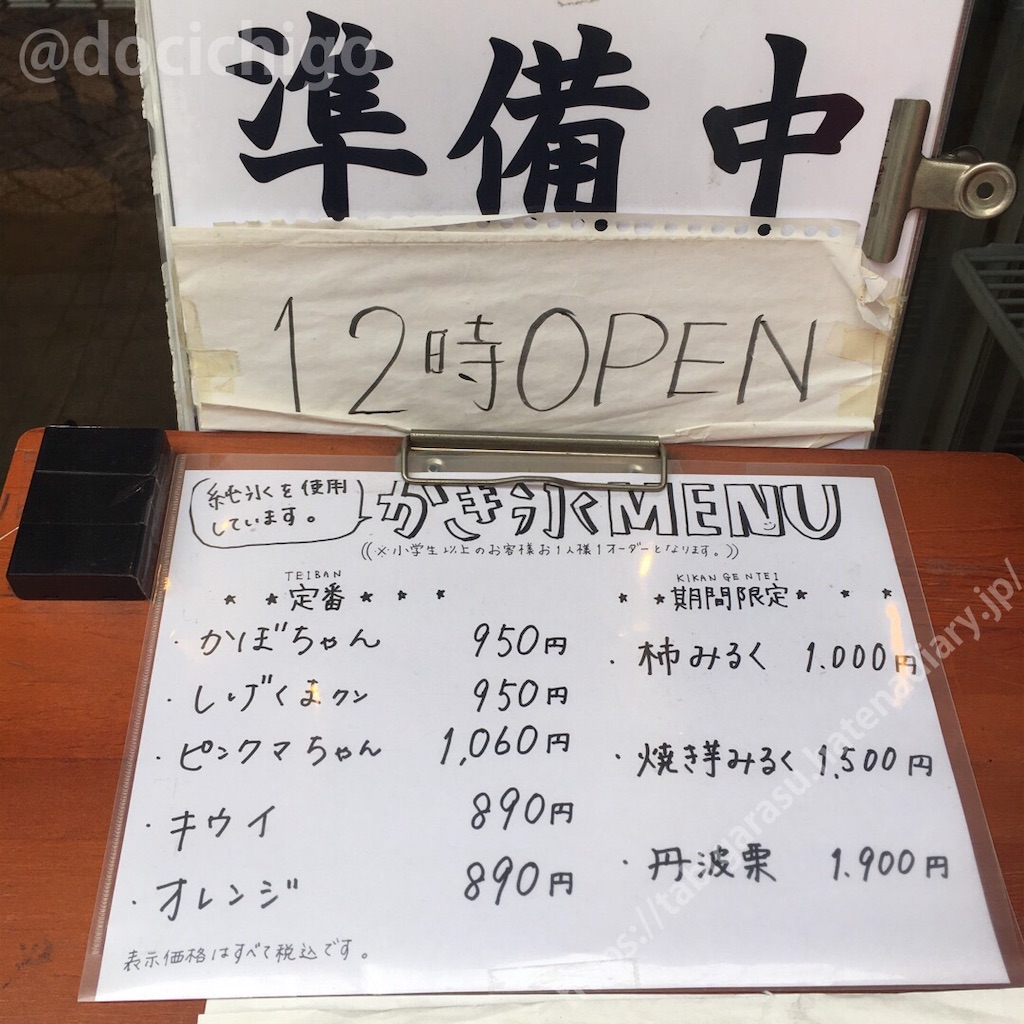 @docichigo
準備中
12時OPEN
純氷を使用
しています。
かき氷MENU
((※小学生以上のお客様お1人様1オーダーとなります。))
TEIBAN
★ ★定番★ ★ ★
・かぼちゃん 950円
・しげくまクン 950円
・ピンクマちゃん 1,060円
・キウイ 890円
・オレンジ 890円
表示価格はすべて税込です。
KIKAN GENTEI
★ ★期間限定★ ★ ★
・柿みるく 1.000円
・焼き芋みるく 1,500円
・丹波栗 1.900円